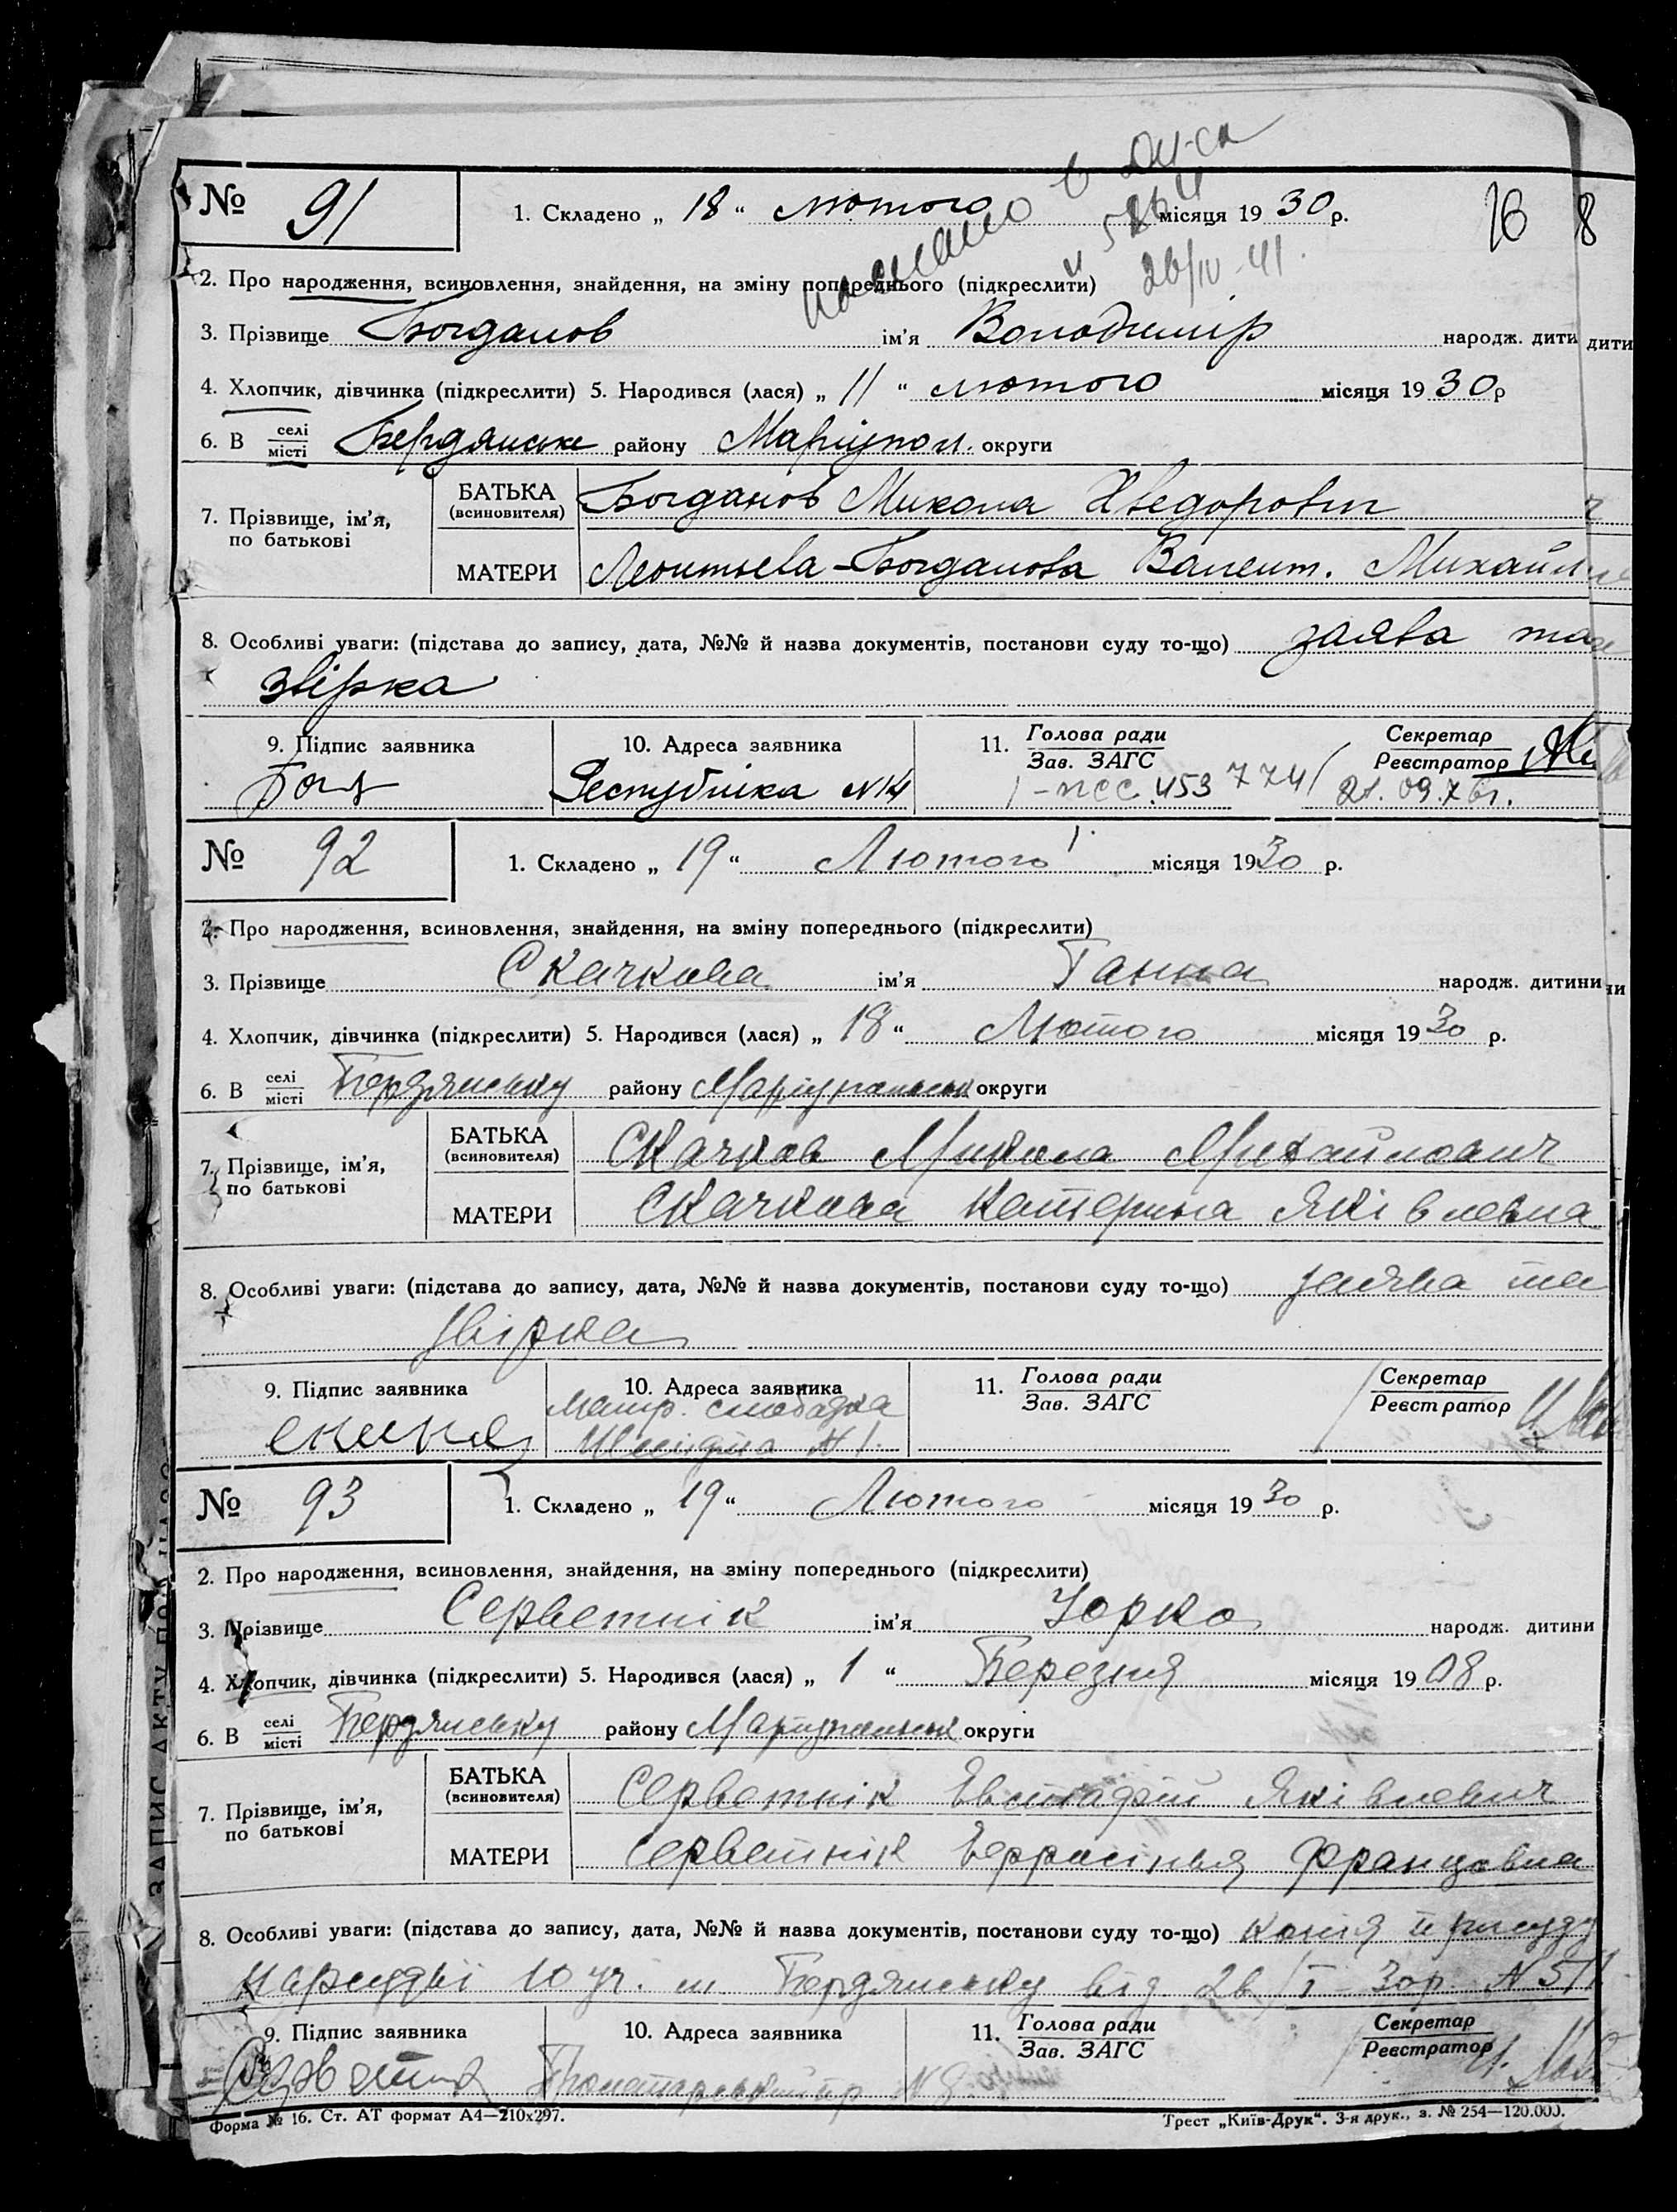 № 91 1. Складено „ 18 “ лютого місяця 19 30 р.
26/IV-41.
16 8
2. Про народження, всиновлення, знайдення, на зміну попереднього (підкреслити)
3. Прізвище Богданов ім'я Володимір народж. дити дити
4. Хлопчик, дівчинка (підкреслити) 5. Народився (лася) „ 11 “ лютого місяця 19 30 р
6. В селі місті Бердянське району Маріупол. округи
7. Прізвище, ім'я, по батькові
БАТЬКА (всиновителя) Богданов Микола Хведорович
МАТЕРИ Леонтьева-Богданова Валент. Михайл
8. Особливі уваги: (підстава до запису, дата, №№ й назва документів, постанови суду то-що) заява та
звірка
9. Підпис заявника 10. Адреса заявника 11. Голова ради Зав. ЗАГС Секретар Реєстратор
Богд Республіка №14 453774 21.09.
№ 92 1. Складено „ 19 “ Лютого місяця 19 30 р.
2. Про народження, всиновлення, знайдення, на зміну попереднього (підкреслити)
3. Прізвище Скачкова ім'я Ганна народж. дитини
4. Хлопчик, дівчинка (підкреслити) 5. Народився (лася) „ 18 “ Лютого місяця 19 30 р.
6. В селі місті Бердянську району Маріупольськ округи
7. Прізвище, ім'я, по батькові
БАТЬКА (всиновителя) Скачков Микола Михайлович
МАТЕРИ Скачкова Катерина Яківлевна
8. Особливі уваги: (підстава до запису, дата, №№ й назва документів, постанови суду то-що) заява та
звірка
9. Підпис заявника 10. Адреса заявника 11. Голова ради Зав. ЗАГС Секретар Реєстратор
слободка
№ 1.
№ 93 1. Складено „ 19 “ Лютого місяця 19 30 р.
2. Про народження, всиновлення, знайдення, на зміну попереднього (підкреслити)
3. Прізвище Серветнік ім'я Юрко народж. дитини
4. Хлопчик, дівчинка (підкреслити) 5. Народився (лася) „ 1 “ Березня місяця 19 08 р.
6. В селі місті Бердянську району Маріупольськ округи
7. Прізвище, ім'я, по батькові
БАТЬКА (всиновителя) Серветнік Евстафій Яківлевич
МАТЕРИ Серветнік Францовна
8. Особливі уваги: (підстава до запису, дата, №№ й назва документів, постанови суду то-що) копія присуду
Нарсудві 10 уч. м Бердянську від 26/I- 30р. № 511
9. Підпис заявника 10. Адреса заявника 11. Голова ради Зав. ЗАГС Секретар Реєстратор
Форма № 16. Ст. АТ формат А4—210x297. Трест „Київ-Друк“. 3-я друк., з. № 254—120.000.